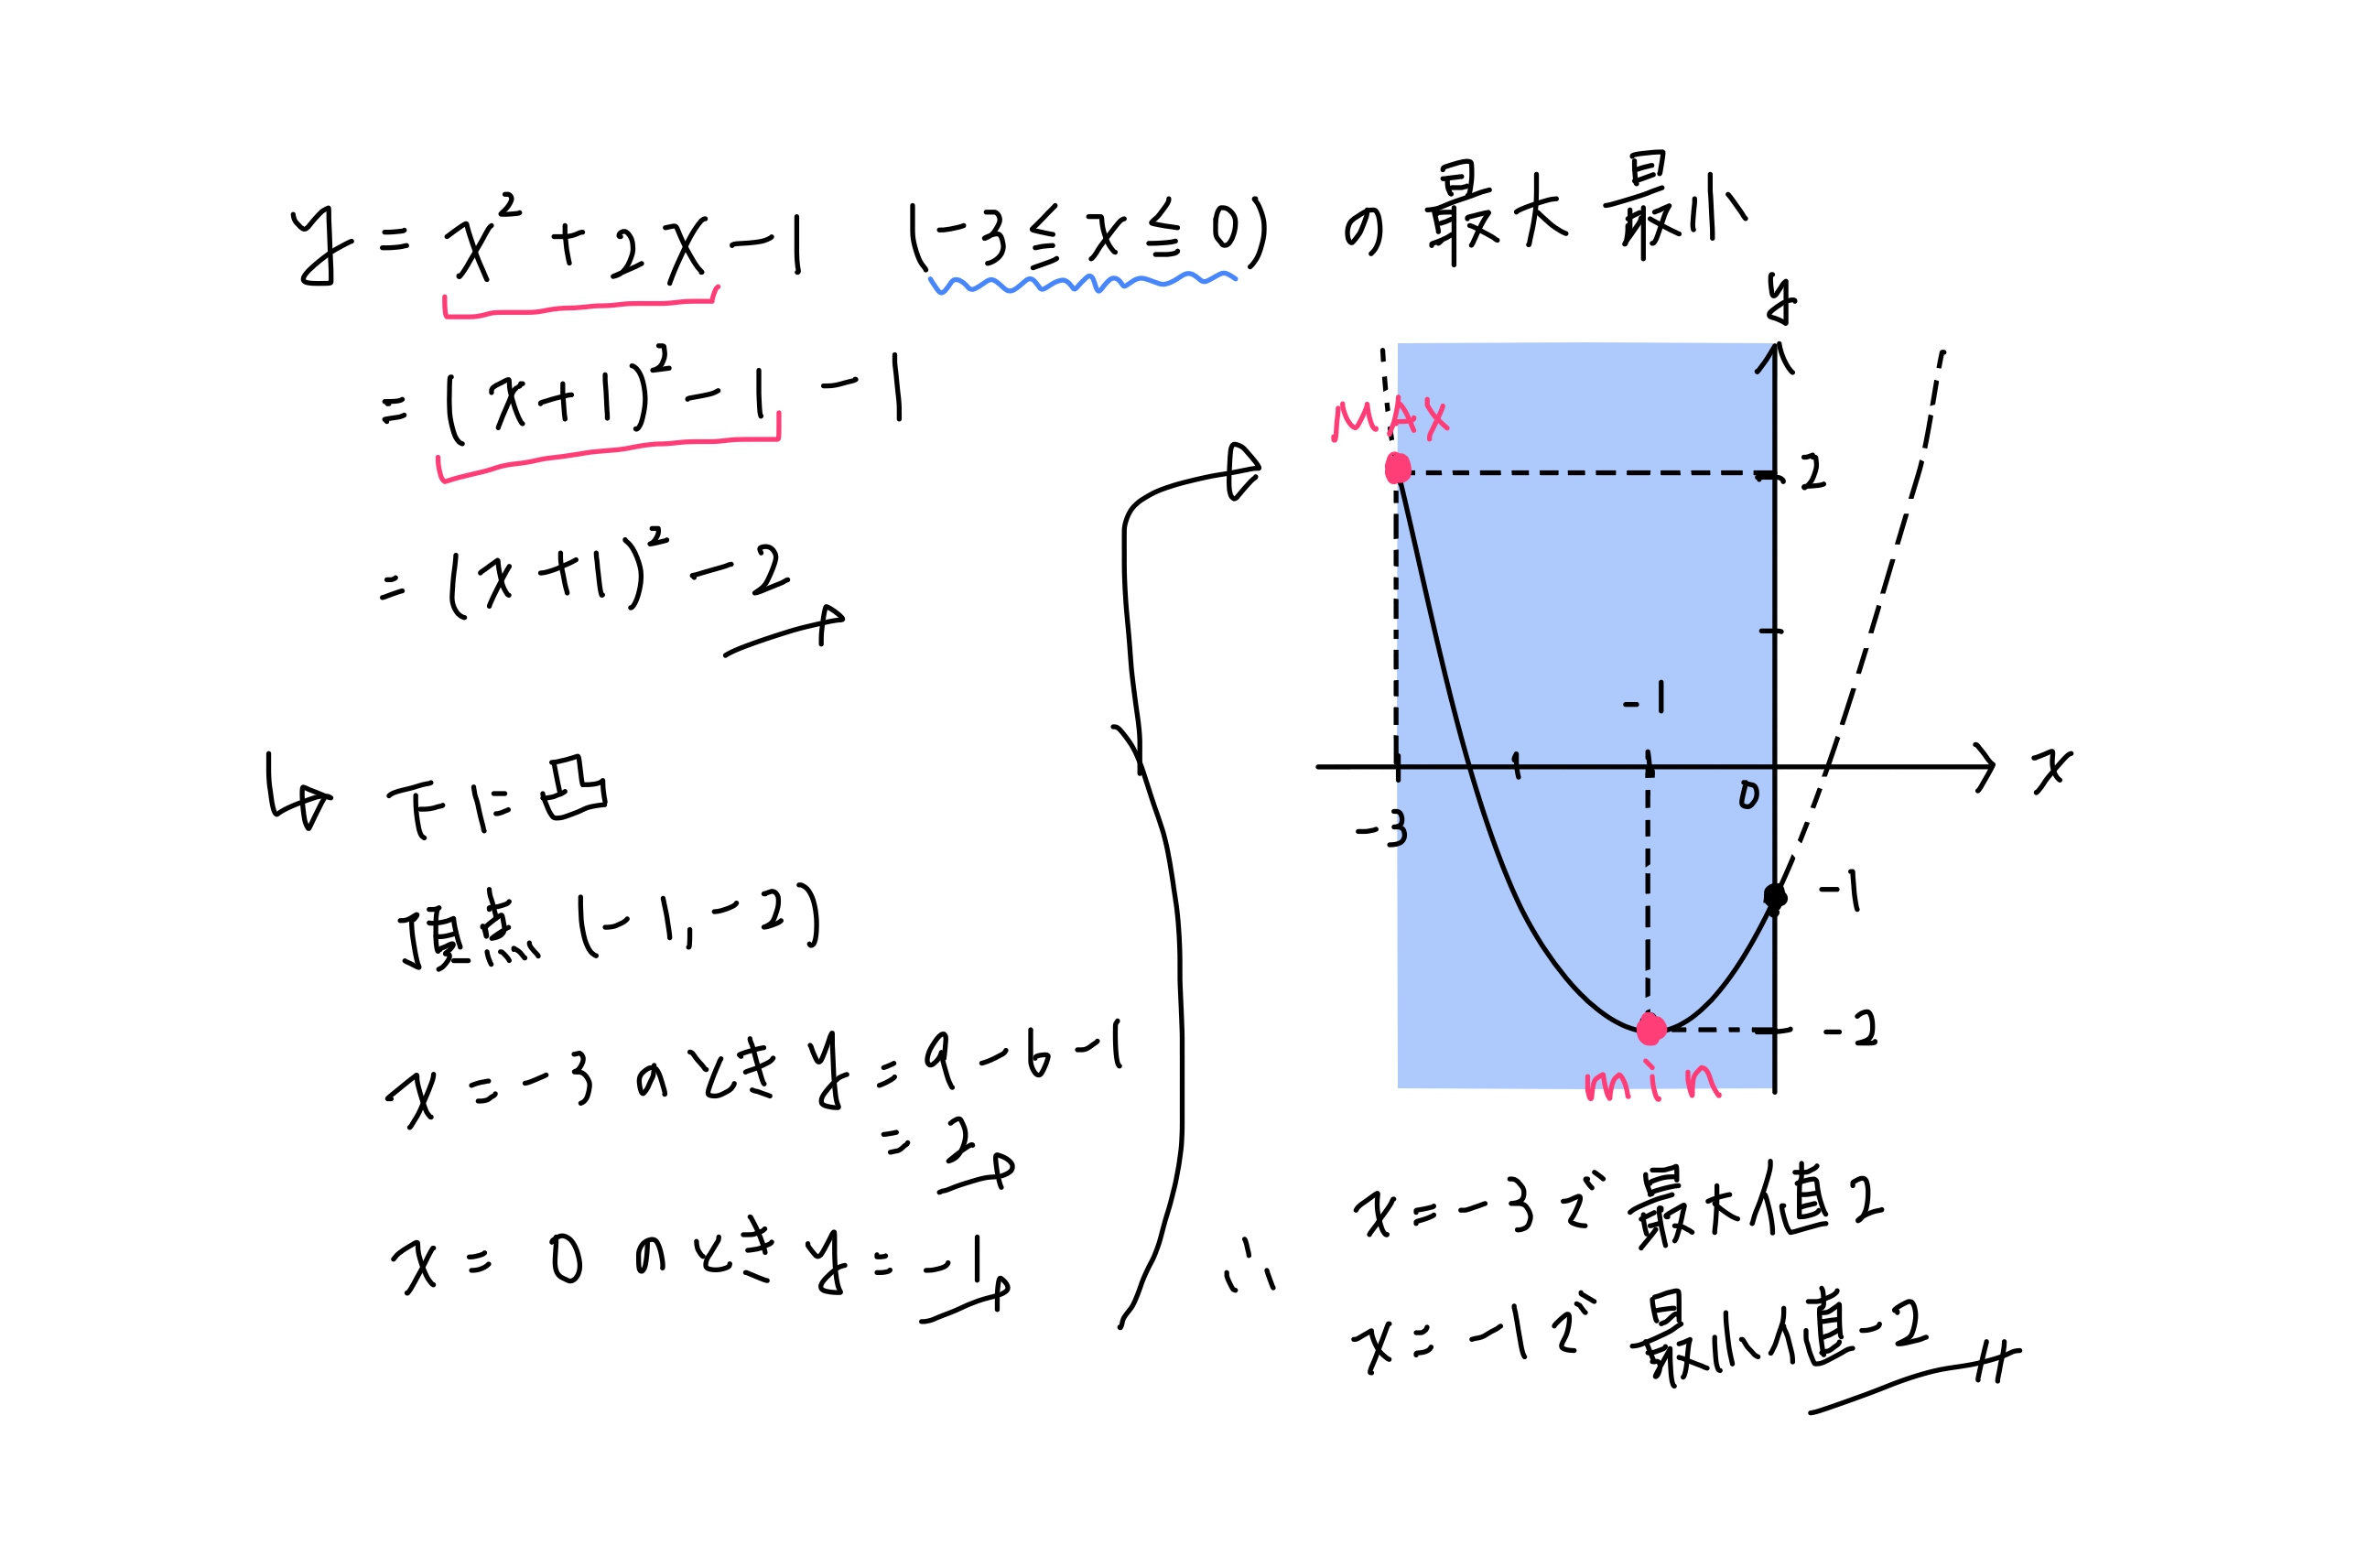 y = x² + 2x - 1 (-3 ≦ x ≦ 0) の最大最小
= (x+1)² - 1 - 1
= (x+1)² - 2
下に凸
頂点 (-1, -2)
x = -3 のとき y = 9 - 6 - 1
= 2
x = 0 のとき y = -1
y
Max
2
-1
0
x
-3
-1
-2
min
∴ x = -3 で 最大値 2
x = -1 で 最小値 -2